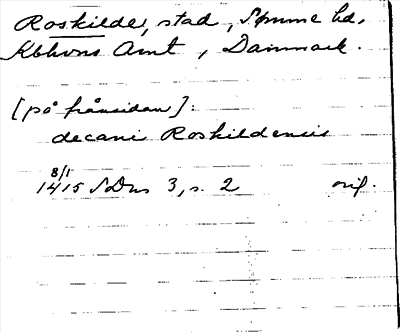 Roskilde, stad, Sømme hd.
Kbhvns Amt, Danmark.
[på frånsidan]:
decani Roskildensis
8/1
1415 SDns 3, s. 2 orig.